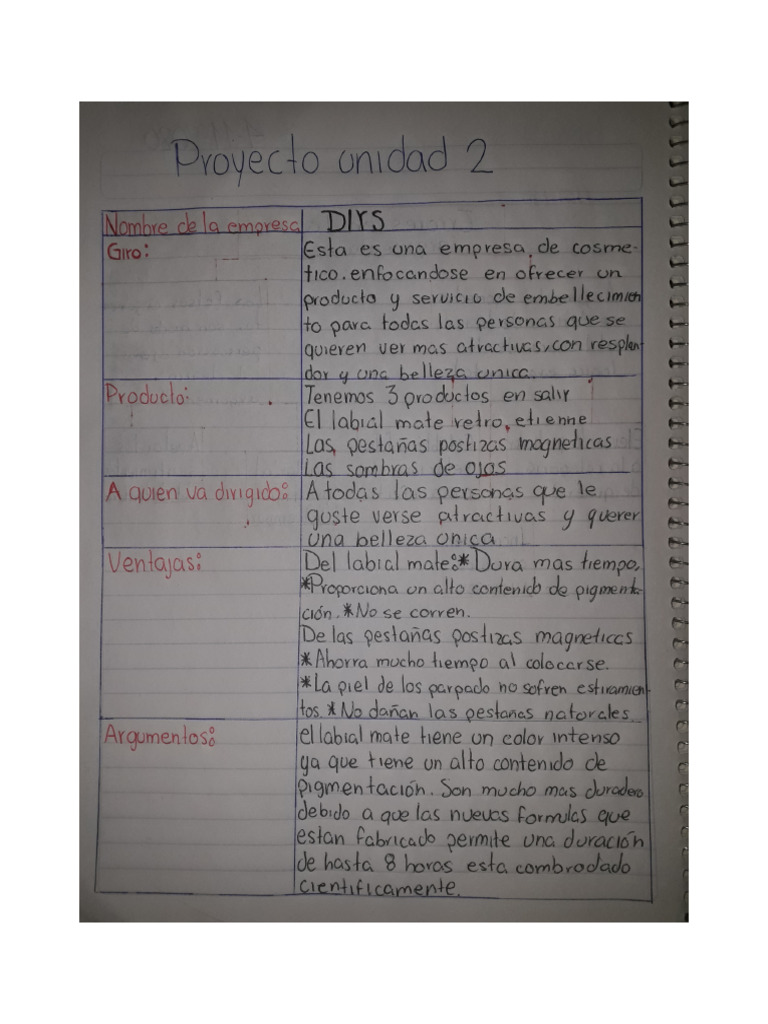 Proyecto unidad 2
Nombre de la empresa DIYS
Giro: Esta es una empresa de cosme-
tico. enfocandose en ofrecer un
producto y servicio de embellecimien
to para todas las personas que se
quieren ver mas atractivas, con resplan-
dor y una belleza unica.
Producto: Tenemos 3 productos en salir
El labial mate retro, etienne
Las pestañas postizas magneticas
Las sombras de ojas
A quien va dirigido: A todas las personas que le
guste verse atractivas y querer
una belleza unica
Ventajas: Del labial mate:* Dura mas tiempo.
*Proporciona un alto contenido de pigmenta-
ción. *No se corren.
De las pestañas postizas magneticas
*Ahorra mucho tiempo al colocarse.
*La piel de los parpado no sofren estiramien-
tos * No dañan las pestañas naturales.
Argumentos: el labial mate tiene un color intenso
ya que tiene un alto contenido de
pigmentación. Son mucho mas duradero
debido a que las nuevas formulas que
estan fabricado permite una duración
de hasta 8 horas esta combrodado
cientificamente.